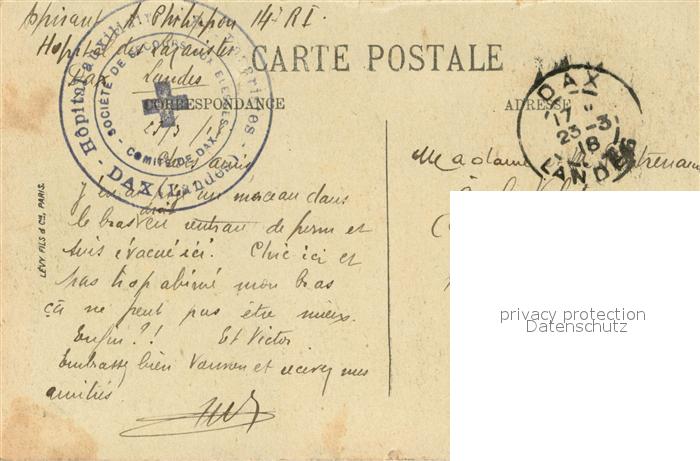 Aspirant A Philippon 14e R I.
Hopital des Lazaristes
Dax Landes
CARTE POSTALE
CORRESPONDANCE
ADRESSE
Hôpital Auxiliaire
DAX (Landes)
SOCIÉTÉ DE SECOURS AUX BLESSÉS
COMITÉ DE DAX
DAX
17
23-3
18
LANDES
23/3/18
amis
Madame
J'ai un morceau dans
le bras droit en rentrant de perm et
suis évacué ici. Chic ici et
pas trop abîmé mon bras
ça ne peut pas être mieux.
Enfin ?! Et Victor
Embrassez bien et recevez mes
amitiés.
LÉVY FILS & Cie, PARIS.
privacy protection
Datenschutz